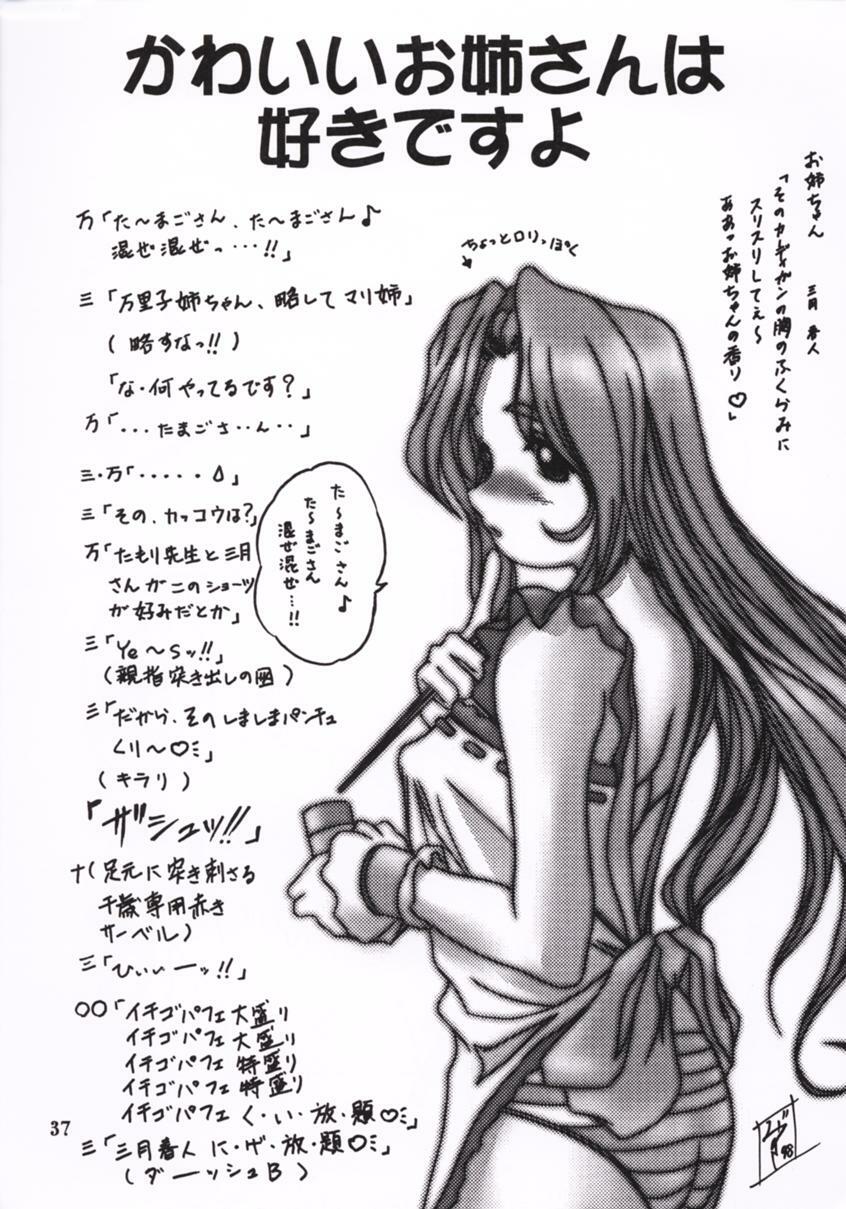 かわいいお姉さんは
好きですよ
お姉ちゃん　三月春人
「そのカーディガンの胸のふくらみに
スリスリしてぇ～
ああっお姉ちゃんの香り♡」
ちょっとロリっぽく
万「た～まごさん、た～まごさん♪
混ぜ混ぜっ・・・!!」
三「万里子姉ちゃん、略してマリ姉」
(略すなっ!!)
「な・何やってるです?」
万「・・・たまごさ・・ん・・」
三・万「・・・・・」
三「その、カッコウは?」
万「たもり先生と三月
さんがこのショーツ
が好みだとか」
三「Ye～Sッ!!」
(親指突き出しの図)
三「だから、そのしましまパンチュ
くり～♡」
(キラリ)
「ザシュッ!!」
ナ(足元に突き刺さる
千歳専用赤き
サーベル)
三「ひぃぃーッ!!」
○○「イチゴパフェ大盛り
イチゴパフェ大盛り
イチゴパフェ特盛り
イチゴパフェ特盛り
イチゴパフェく・い・放・題♡」
三「三月春人に・げ・放・題♡」
(ダーッシュB)
た～まごさん♪
た～まごさん
混ぜ混ぜ…!!
98
37